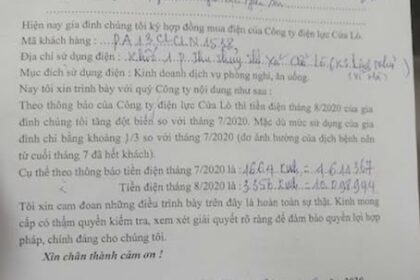 Hiện nay gia đình chúng tôi ký hợp đồng mua điện của Công ty điện lực Cửa Lò.
Mã khách hàng : PA13CLCLN1518
Địa chỉ sử dụng điện : Khối 1. P. Thu Thủy, Thị xã Cửa Lò
Mục đích sử dụng điện : Kinh doanh dịch vụ phòng nghỉ, ăn uống.
Nay tôi xin trình bày với quý Công ty nội dung như sau :
Theo thông báo của Công ty điện lực Cửa Lò thì tiền điện tháng 8/2020 của gia
đình chúng tôi tăng đột biến so với tháng 7/2020. Mặc dù mức sử dụng của gia
đình chỉ bằng khoảng 1/3 so với tháng 7/2020 (do ảnh hưởng của dịch bệnh nên
từ cuối tháng 7 đã hết khách).
Cụ thể theo thông báo tiền điện tháng 7/2020 là : 1664 kwh = 4611367
Tiền điện tháng 8/2020 là : 3356 kwh = 10.098944
Tôi xin cam đoan những điều trình bày trên đây là hoàn toàn sự thật. Kính mong
cấp có thẩm quyền kiểm tra, xem xét giải quyết rõ ràng để đảm bảo quyền lợi hợp
pháp, chính đáng cho chúng tôi.
Xin chân thành cảm ơn !